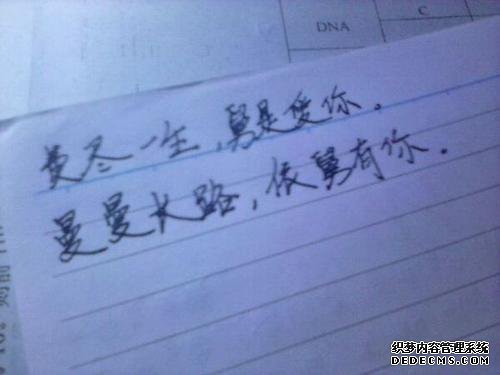 C
DNA
费尽一生，舅是爱你。
曼曼长路，依舅有你．
则前
织梦内容管理系统
DEDECMS.COM